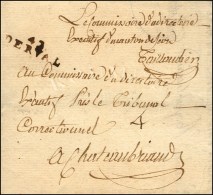 Le Commissaire du directoire
Exécutif du canton de
44
DERVAL
Au Commissaire du directoire
Exécutif près le Tribunal
Correctionnel
4
a Chateaubriand